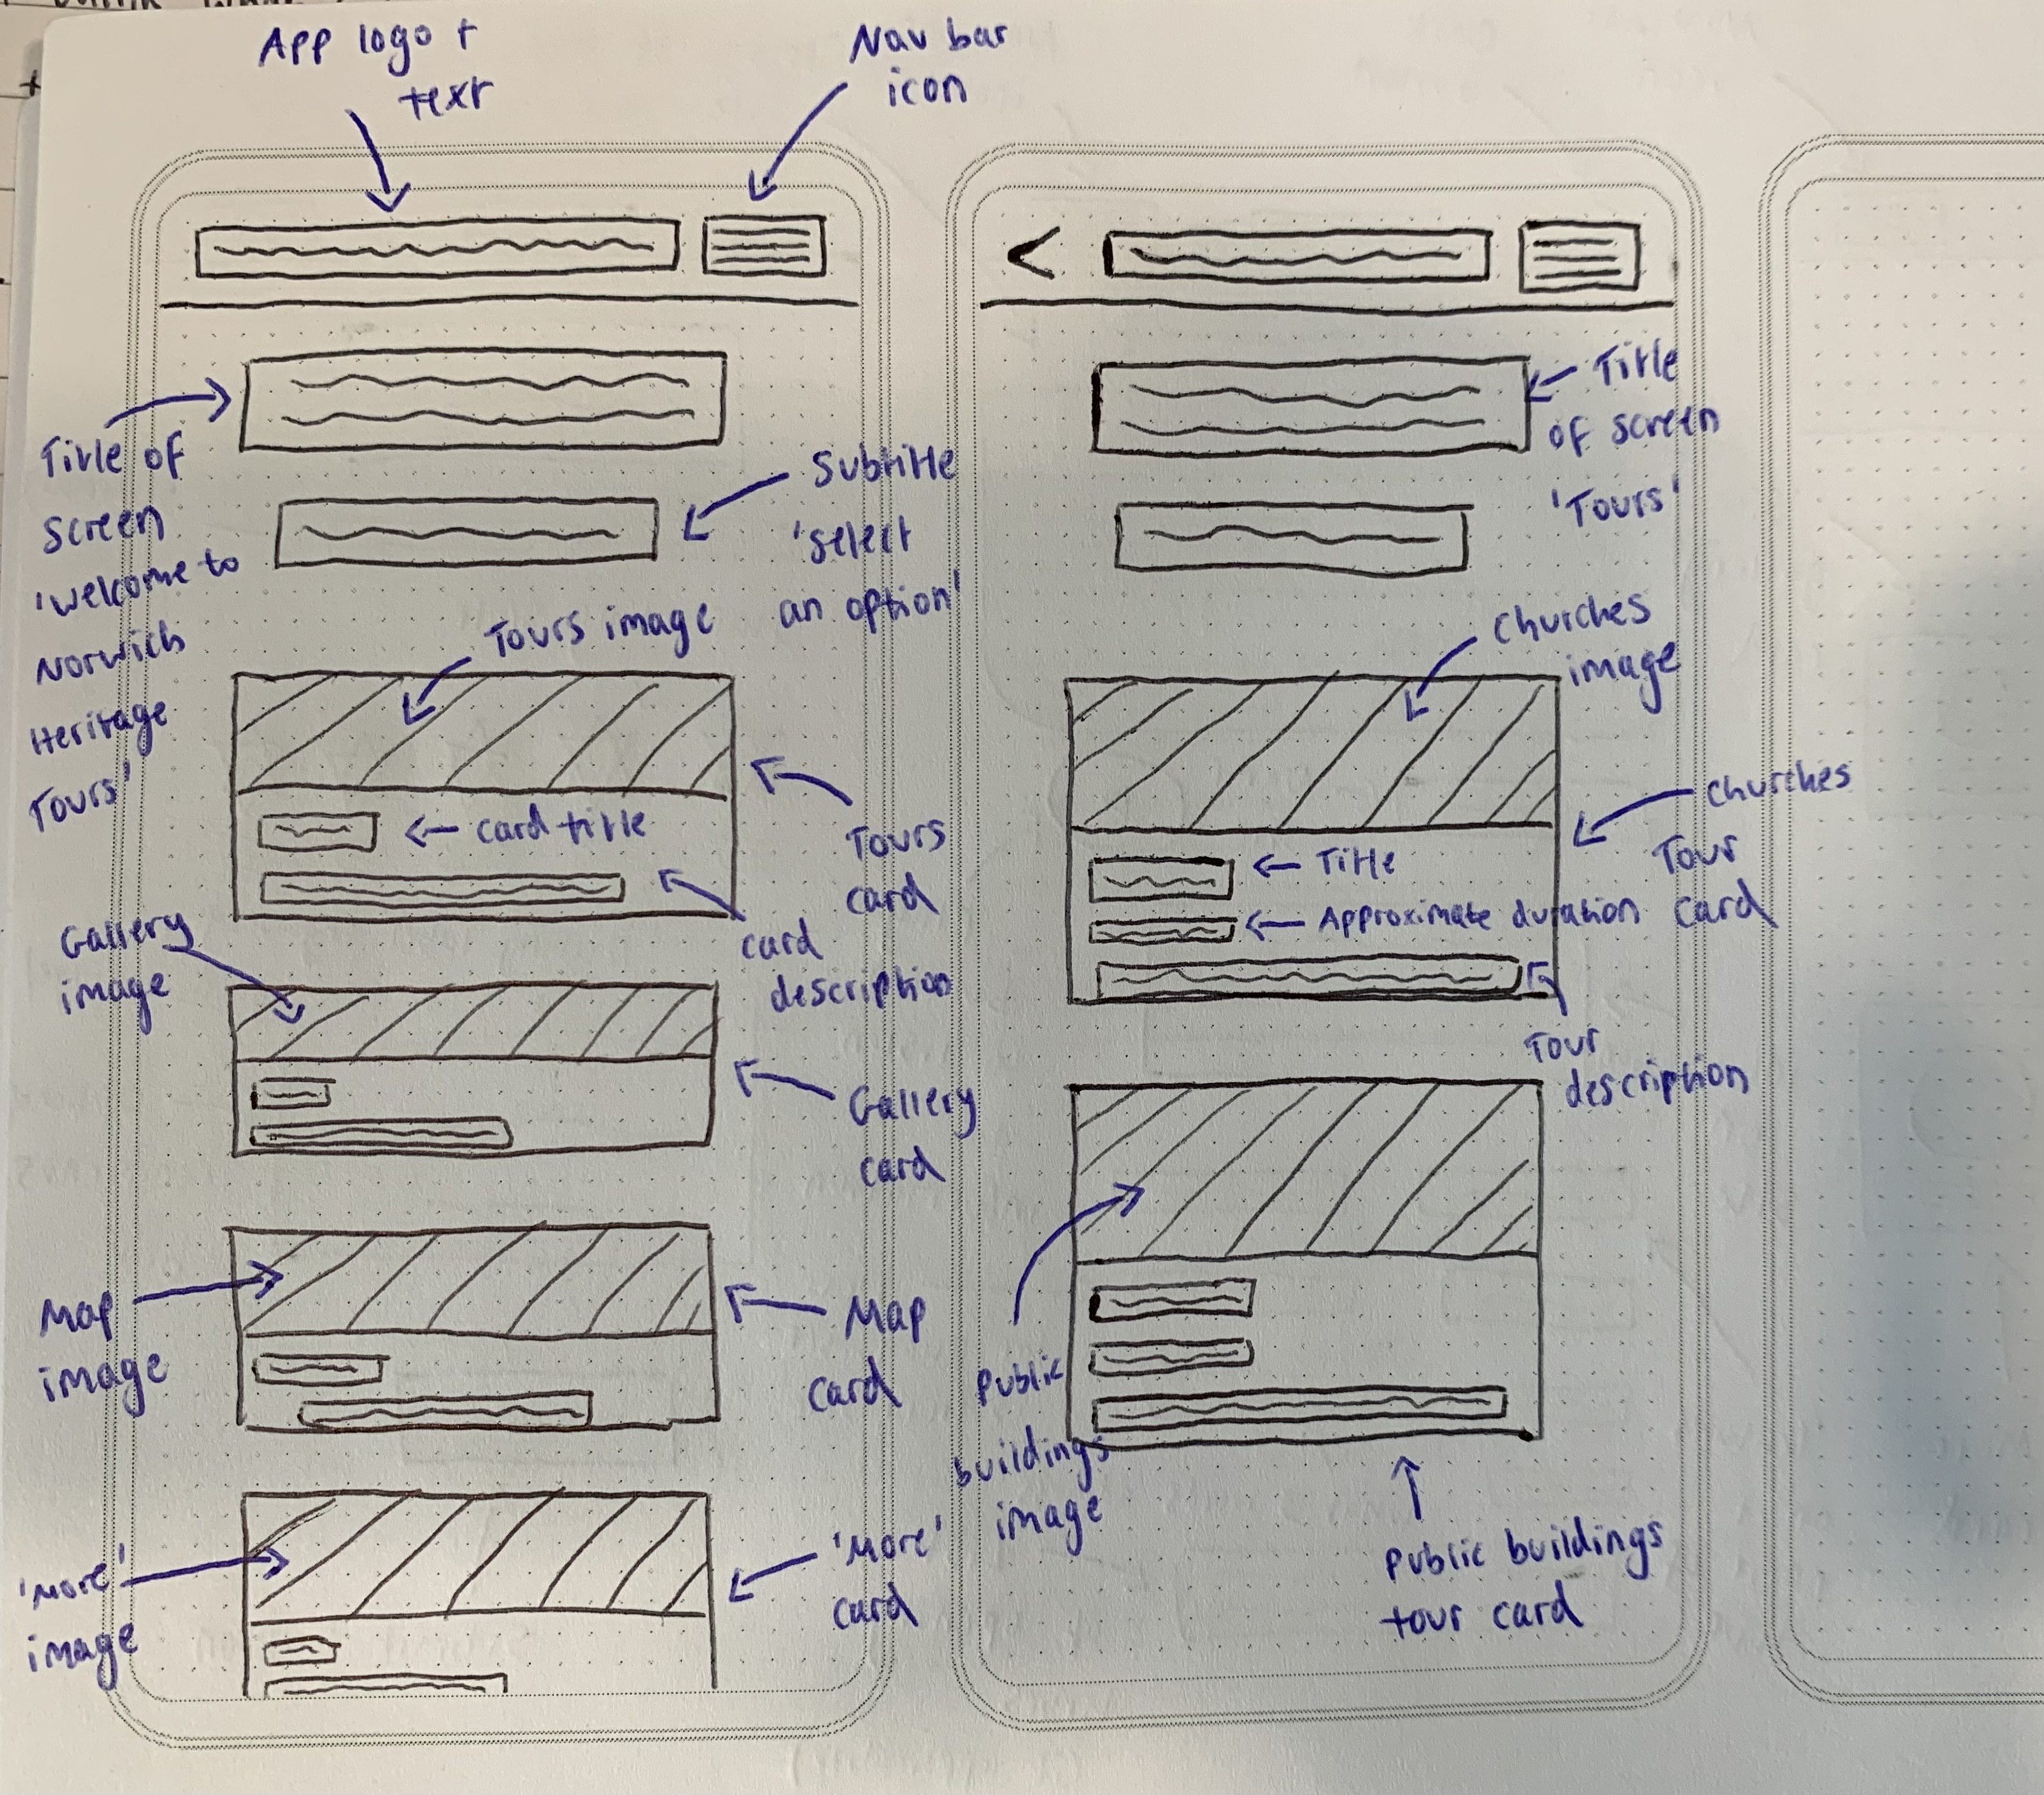 App logo +
text
Nav bar
icon
Title of
screen
'Welcome to
Norwich
Heritage
Tours'
Subtitle
'select
an option'
Tours image
Tours
card
card title
card
description
Gallery
image
Gallery
card
Map
image
Map
card
'More'
image
'More'
card
<
Title
of screen
'Tours'
Churches
image
Churches
Tour
card
Title
Approximate duration
Tour
description
Public
buildings
image
Public buildings
tour card